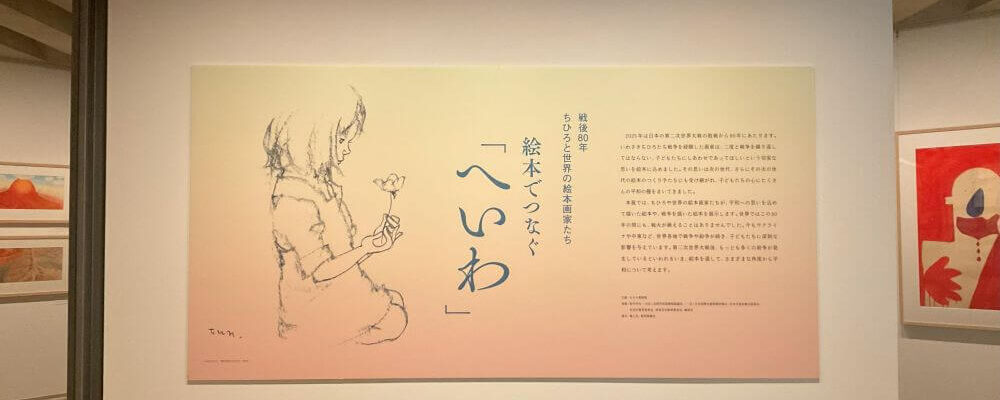 戦後80年
ちひろと世界の絵本画家たち
絵本でつなぐ
「へいわ」
2025年は日本の第二次世界大戦の敗戦から80年にあたります。
いわさきちひろたち戦争を経験した画家は、二度と戦争を繰り返し
てはならない、子どもたちにしあわせであってほしいという切実な
思いを絵本に込めました。その思いは次の世代、さらにその次の世
代の絵本のつくり手たちにも受け継がれ、子どもたちの心にたくさ
んの平和の種をまいてきました。
本展では、ちひろや世界の絵本画家たちが、平和への思いを込め
て描いた絵本や、戦争を描いた絵本を展示します。世界ではこの80
年の間にも、戦火が絶えることはありませんでした。今もウクライ
ナや中東など、世界各地で戦争や紛争が続き、子どもたちに深刻な
影響を与えています。第二次世界大戦後、もっとも多くの紛争が発
生しているといわれるいま、絵本を通して、さまざまな角度から平
和について考えます。